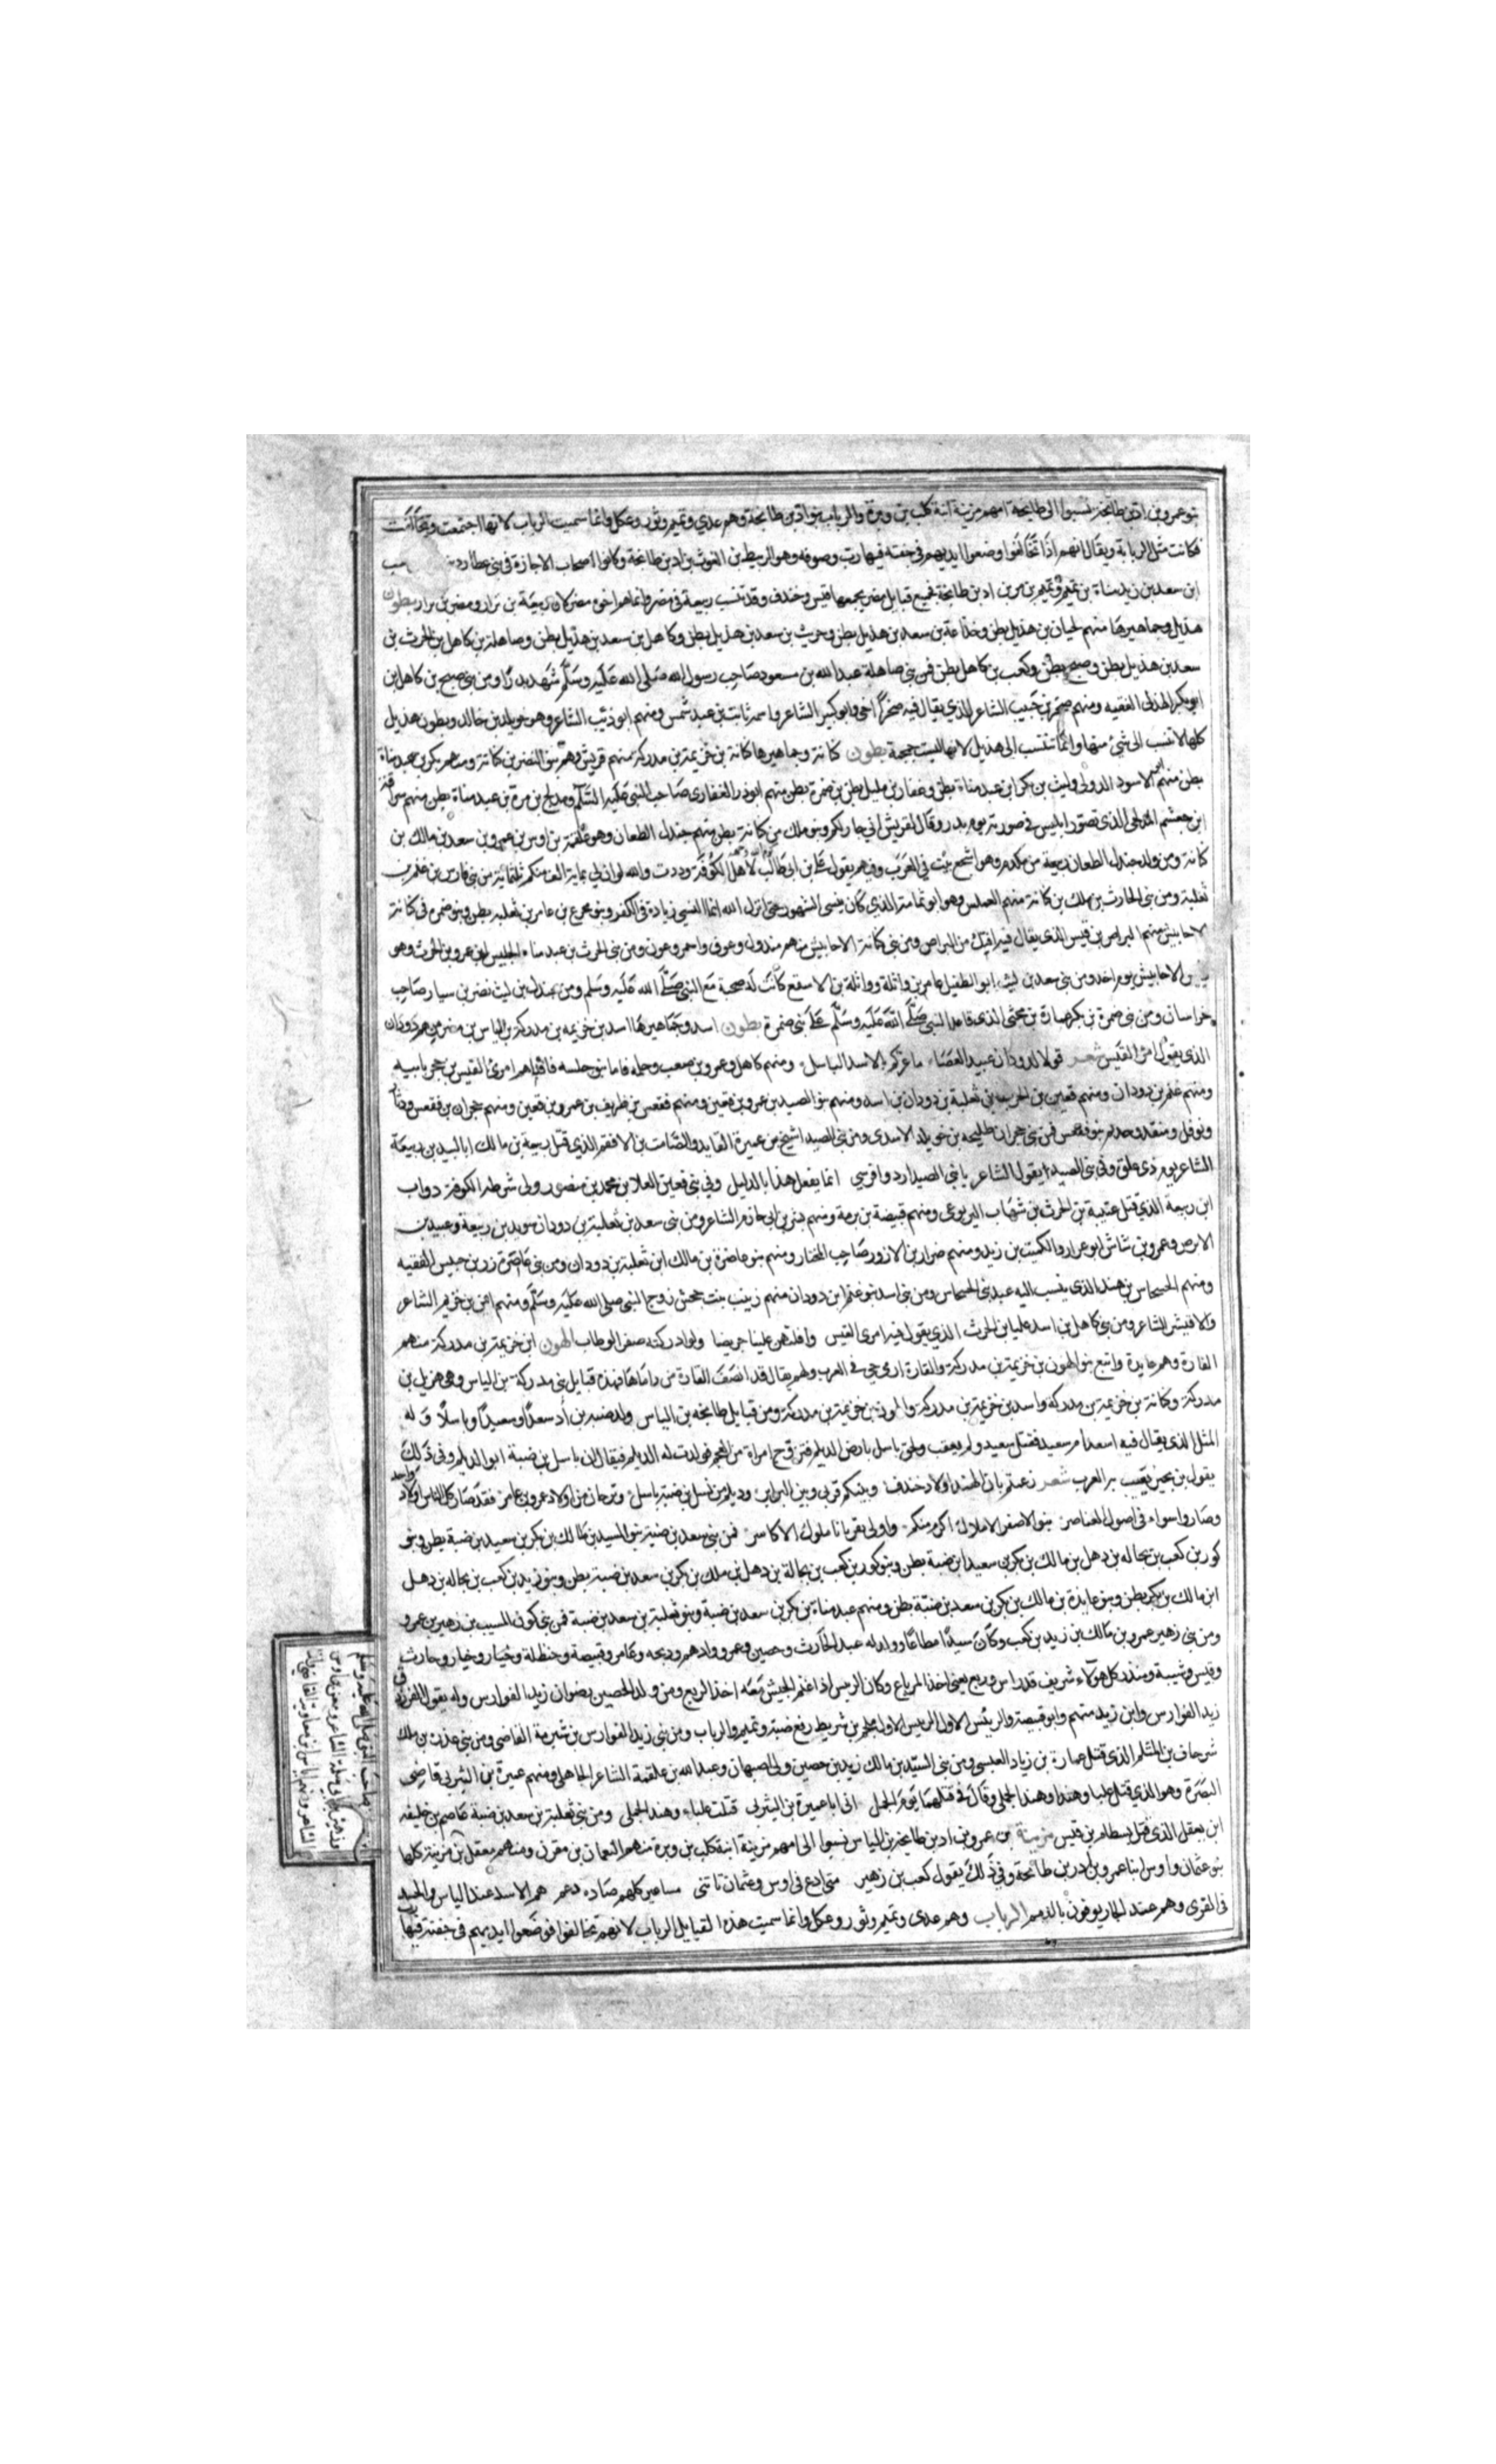 بنو عمرو بن اد بن طابخة نسبوا الى طابخة امهم مزينة ابنة كلب بن وبرة والرباب بنو اد بن طابخة وهم عدي وتميم وثور وعكل وانما سميت الرباب لانها اجتمعت وتحالفت
فكانت مثل الربابة ويقال انهم اذا تحالفوا وضعوا ايديهم في جفنه فيها رب وصوفه وهو الربيط بن الغوث بن اد بن طابخة وكانوا اصحاب الاجازة في بني عطارد بن
ابن سعد بن زيد مناة بن تميم وتميم بن مر بن اد بن طابخة فجميع قبايل مضر يجمعها قيس وخندف وقد تنسب ربيعة في مضر وانما هم اخوة مضر لان ربيعة بن نزار ومضر بن نزار بطون
هذيل وجماهيرها منهم لحيان بن هذيل بطن وخناعة بن سعد بن هذيل بطن وحريث بن سعد بن هذيل بطن وكاهل بن سعد بن هذيل بطن وصاهلة بن كاهل بن الحرث بن
سعد بن هذيل بطن وصبح بطن وكعب بن كاهل بطن فمن بني صاهلة عبد الله بن مسعود صاحب رسول الله صلى الله عليه وسلم شهد بدرا ومن بني صبح بن كاهل ابن
ابو بكر الهذلى الفقيه ومنهم صخر بن حبيب الشاعر الذي يقال فيه صخر اخي وابو كبير الشاعر واسمه ثابت بن عبد شمس ومنهم ابو ذئيب الشاعر وهو خويلد بن خالد وبطون هذيل
كلها لا تنسب الى شئ منها وانما تنتسب الى هذيل لانها ليست جمجمة بطون كنانة وجماهيرها كنانة بن خزيمة بن مدركة منهم قريش وهم بنو النضر بن كنانة ومنهم بكر بن عبد مناة
بطن منهم ابو الاسود الدولى وليث بن بكر ابن عبد مناة بطن وغفار بن مليل بطن بن ضمرة بطن منهم ابو ذر الغفارى صاحب النبي عليه السلم ومدلج بن مرة بن عبد مناة بطن منهم سراقة
ابن جعشم المدلجى الذى تصور ابليس في صورته يوم بدر وقال لقريش اني جار لكم وبنو ملك من كنانة بطن منهم جندل الطعان وهو علقمة بن اوس بن عمرو بن سعد بن مالك بن
كنانة ومن ولد جندل الطعان ربيعة من مكدم وهو اشجع بيت في العرب وفيهم يقول على بن ابى طالب لاهل الكوفة وددت والله لو ان لي بماية الف منكم ثلثماية من بني فارس بن غنم بن
ثعلبة ومن بني الحارث بن ملك بن كنانة منهم العملس وهو ابو ثمامة الذي كان ينسى الشهور حتى انزل الله انما النسى زيادة في الكفر وبنو مخدج بن عامر بن ثعلبة بطن وبنو ضمرة في كنانة
الاحابيش منهم البراض بن قيس الذى يقال فيه افتك من البراض ومن بني كنانة الاحابيش منهم مبذول وعوف واحمر وعون ومن بني الحرث بن عبد مناه الحليس بن عمرو بن الحرث وهو
ريس الاحابيش يوم احد ومن بني سعد بن ليث ابو الطفيل عامر بن واثلة وواثلة بن الاسقع كانت له صحبة مع النبي صلى الله عليه وسلم ومن جندع بن ليث نصر بن سيار صاحب
خراسان ومن بني ضمرة بن بكر عمارة بن مخشي الذى عاقد النبي صلى الله عليه وسلم على بني ضمرة بطون اسد وجماهيرها اسد بن خزيمه بن مدركة بن الياس بن مضر منهم دودان
الذى يقول امرؤ القيس شعر قولا لدودان عبيد العصا ما غركم بالاسد الباسل ومنهم كاهل وعمرو بن صعب وحلمه فاما بنو حلمه فافناهم امرئ القيس بن حجر بابيه
ومنهم غنم بن دودان ومنهم قعين بن الحرث بن ثعلبة بن دودان بن اسد ومنهم بنو الصيدا بن عمرو بن قعين ومنهم فقعس بن طريف بن عمرو بن قعين ومنهم حجوان بن فقعس ودثار
ونوفل ومنقذ وحذلم بنو فقعس فمن بني حجوان طليحه بن خويلد الاسدى ومن بني الصيدا شيخ بن عميرة القايد والصامت بن الافقم الذي قتل ربيعة بن مالك ابا لبيد بن ربيعة
الشاعر يوم ذى علق وفي بني الصيدا يقول الشاعر يا بني الصيدا ردوا فرسي انما يفعل هذا بالذليل وفي بني قعين العلا بن محمد بن منصور ولى شرطه الكوفة دواب
ابن ربيعة الذي قتل عتيبة بن الحرث بن شهاب اليربوعى ومنهم قبيصة بن برمة ومنهم بشر بن ابى حازم الشاعر ومن بني سعد بن ثعلبة بن دودان سويد بن ربيعة وعبيد بن
الابرص وعمرو بن شاش ابو عرار والكميت بن زيد ومنهم ضرار بن الازور صاحب المختار ومنهم بنو غاضرة بن مالك ابن ثعلبة بن دودان ومن بني غاضرة زر بن حبيس الفقيه
ومنهم الحسحاس بن هند الذى ينسب اليه عبد بني الحسحاس ومن بني اسد بنو غنم ابن دودان منهم زينب بنت جحش زوج النبي صلى الله عليه وسلم ومنهم ايمن بن خريم الشاعر
والاقيشر الشاعر ومن بني كاهل بن اسد عليا بن الحرث الذي يقول فيه امرى القيس وافلتهن عليبا جريضا ولو ادركنه صفر الوطاب الهون ابن خزيمة بن مدركة منهم
القارة وهم عايدة واتبع بنو الهون بن خزيمة بن مدركة والقارة ارمى حى في العرب ولهم يقال قد انصف القارة من راماها فهذه قبايل بني مدركة بن الياس وهى هذيل بن
مدركة وكنانة بن خزيمة بن مدركة واسد بن خزيمة بن مدركة والهون بن خزيمة بن مدركة ومن قبايل طابخه بن الياس ولد ضبه بن اد سعدا وسعيدا وباسلا وله
المثل الذى يقال فيه اسعد ام سعيد فقتل سعيد ولم يعقب ولحق باسل بارض الديلم فتزوج امراة من العجم فولدت له الديلم فيقال ان باسل بن ضبة ابو الديلم وفى ذلك
يقول بن بحير يعيب بر العرب شعر زعمتم بان الهند اولاد خندف وبينكم قربى وبين البرابر وديلم من نسل بن ضبة باسل وبرجان من اولاد عمرو بن عامر فقد صار كل الناس اولاد واحد
وصاروا سواء فى اصول العناصر بنو الاصفر الاملاك اكرم منكم واولى بقربانا ملوك الاكاسر فمن بني سعد بن ضبة بنو السيد بن مالك بن بكر بن سعيد بن ضبة بطن وبنو
كوز بن كعب بن بجاله بن دهل بن مالك بن بكر بن سعيد ابن ضبة بطن وبنو كوز بن كعب بن بجالة بن دهل بن ملك بن بكر بن سعد بن ضبة بطن وبنو زيد بن كعب بن بجاله بن دهل
ابن مالك بن بكر بطن وبنو عايدة بن مالك بن بكر بن سعد بن ضبة بطن ومنهم عبد مناة بن بكر بن سعد بن ضبة وبنو ثعلبة بن سعد بن ضبة فمن بني كوز المسيب بن زهير بن عمرو
ومن بني زهير عمرو بن مالك بن زيد بن كعب وكان سيدا مطاعا وولد له عبد الحارث وحصين وعمرو وادهم ودبجه وعامر وقبيصة وحنظلة وخيار وحارث
وقيس وشيبة ومنذر كل هولاء شريف قد راس وربع يعني اخذ المرباع وكان الريس اذا غنم الجيش معه اخذ الربع ومن ولد الحصين بضوان زيد الفوارس وله يقول الفرزدق
زيد الفوارس وابن زيد منهم وابو قبيصة والريس الاول الريس الاول محلم بن شريط ربع ضبة وتميم والرباب ومن بني زيد الفوارس بن شبرمة القاضى ومن بني عايذة بن ملك
شرحاف بن المثلم الذى قتل عمارة بن زياد العبسى ومن بني السيد بن مالك زيد بن حصين ولى اصبهان وعبد الله بن علقمة الشاعر الجاهلى ومنهم عميرة بن اليثربى قاضى
البصرة وهو الذي قتل علبا وهندا وهند الجملى وقال في قتلهما يوم الجمل انى ابا عميرة بن اليثربى قتلت علباء وهند الجملى ومن بني ثعلبة بن سعد بن ضبة عاصم بن خليفه
ابن معقل الذى قتل بسطام بن قيس مزينة بن عمرو بن اد بن طابخة بن الياس نسبوا الى امهم مزينة ابنة كلب بن وبرة منهم النعمان بن مقرن ومنهم معقل بن مزينة كلها
بنو عثمان واوس ابنا عمرو بن اد بن طابخة وفي ذلك يقول كعب بن زهير متى ادع فى اوس وعثمان تاتنى مساعير كلهم صاده دعم هم الاسد عند الباس والحشد
فى القرى وهم عند الجار يوفون بالذمم الرباب وهم عدى وتميم وثور وعكل وانما سميت هذه القبايل الرباب لانهم تحالفوا فوضعوا ايديهم فى جفنة فيها
صاحب النبي صلى الله عليه وسلم
الشاعر ومعن بن اوس
الشاعر ومنهم اياس بن معاوية القاضي